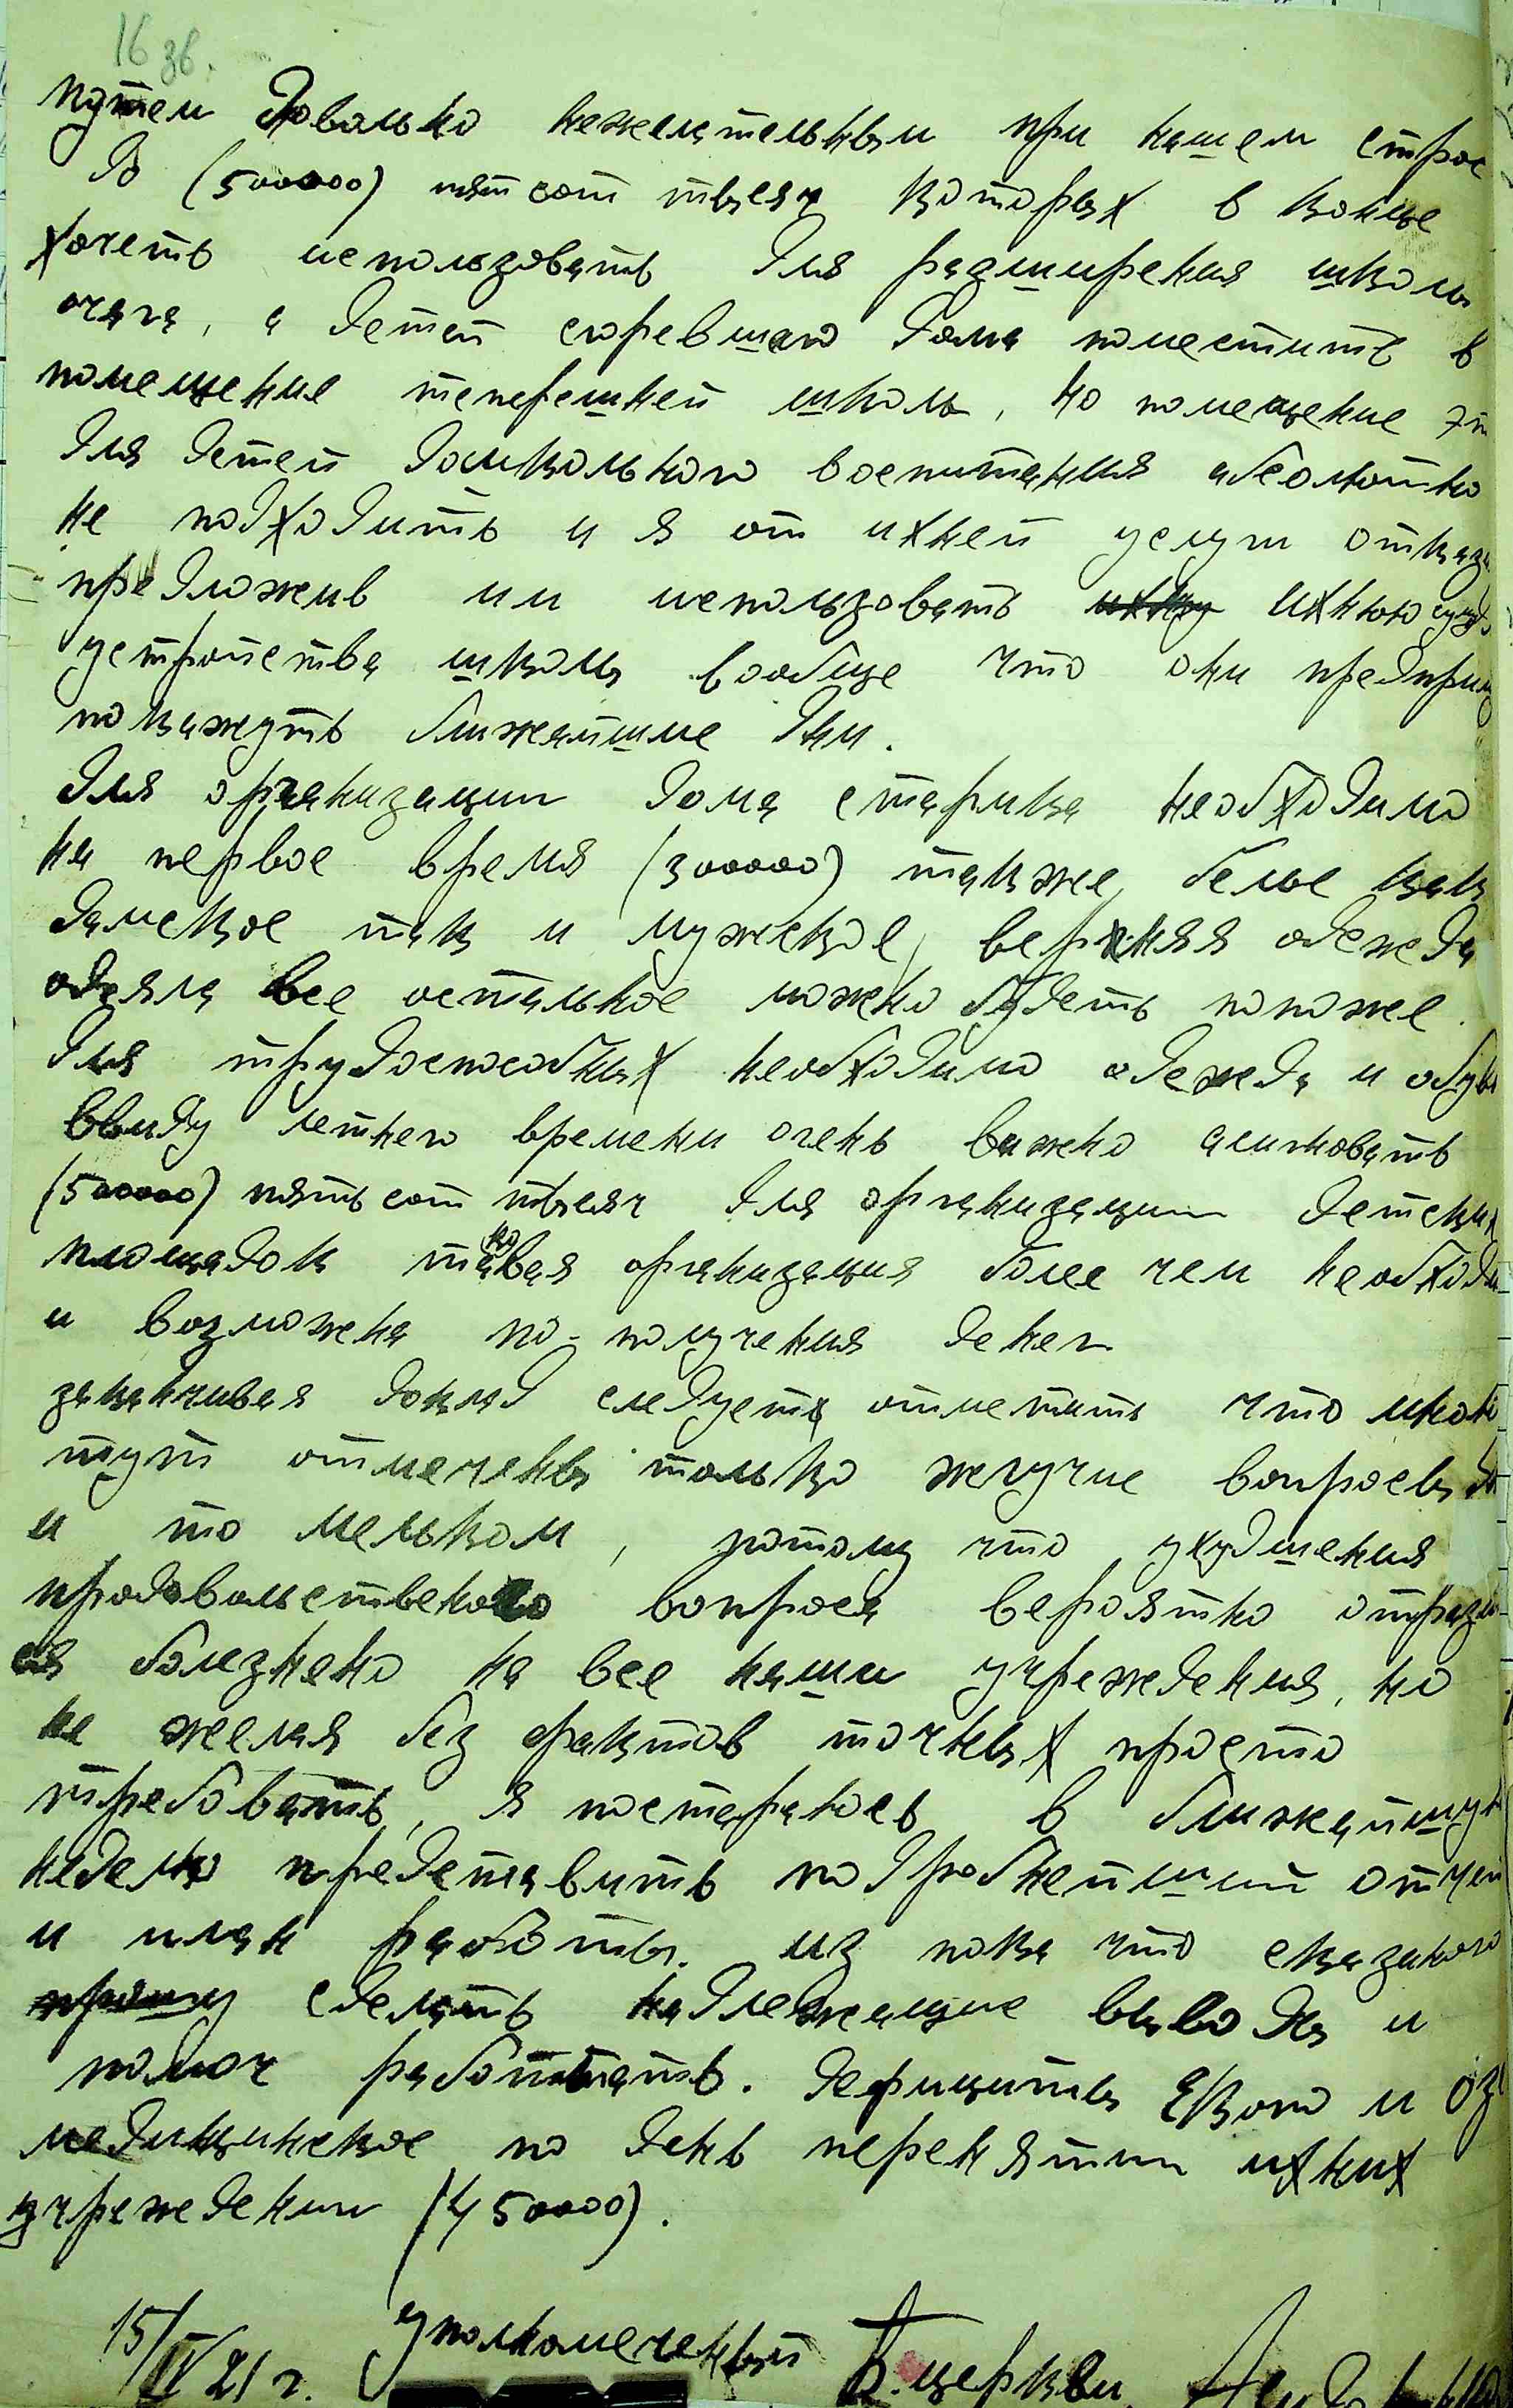 16 зв.
путем довольно нежелательным при нашем строе
До (500000) пятсот тысяч которых в конце
хочеть использовать для разширения школы
очага, а детей сгоревшаго дома поместить в
помещение теперешней школы, но помещение эт
для детей дошкольного воспитания абсолютно
не подходить и я от ихней услуги отказа
предложив им использовать ихнюю
устройства школы вообще что они предприм
покажуть ближайшие дни.
Для организации дома старика необходимо
на первое время (300000) также, белье как
дамское так и мужское, верхняя одежда
одеяла все остальное можно будеть попоже.
Для трудоспособных необходимо одежда и обувь
ввиду летнего времени очень важно асигновать
(500000) пятьсот тысяч для организации детских
площадок такая организация более чем необходи-
и возможна по-получения денег
заканчивая доклад следуеть отметить что мною
тут отмечены только жгучие вопросы
и то мельком, потому что ухудшения
продовольственого вопроса вероятно отрази-
ся болезнено на все наши учреждения, но
не желая без фактов точных просто
требовать, я постараюсь в ближайшую
неделю представить подробнейший отчет
и план работы. из пока что сказаного
прошу сделать надлежащие выводы и
помоч работать. Дефициты Екопо и Озе
медицинское по день перенятии ихних
учреждении (450000).
15/IV 21 г. уполномеченный Б. Церкви